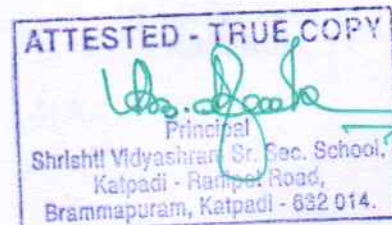 ATTESTED - TRUE COPY
Principal
Shrishti Vidyashram Sr. Sec. School,
Katpadi - Road,
Brammapuram, Katpadi - 632 014.